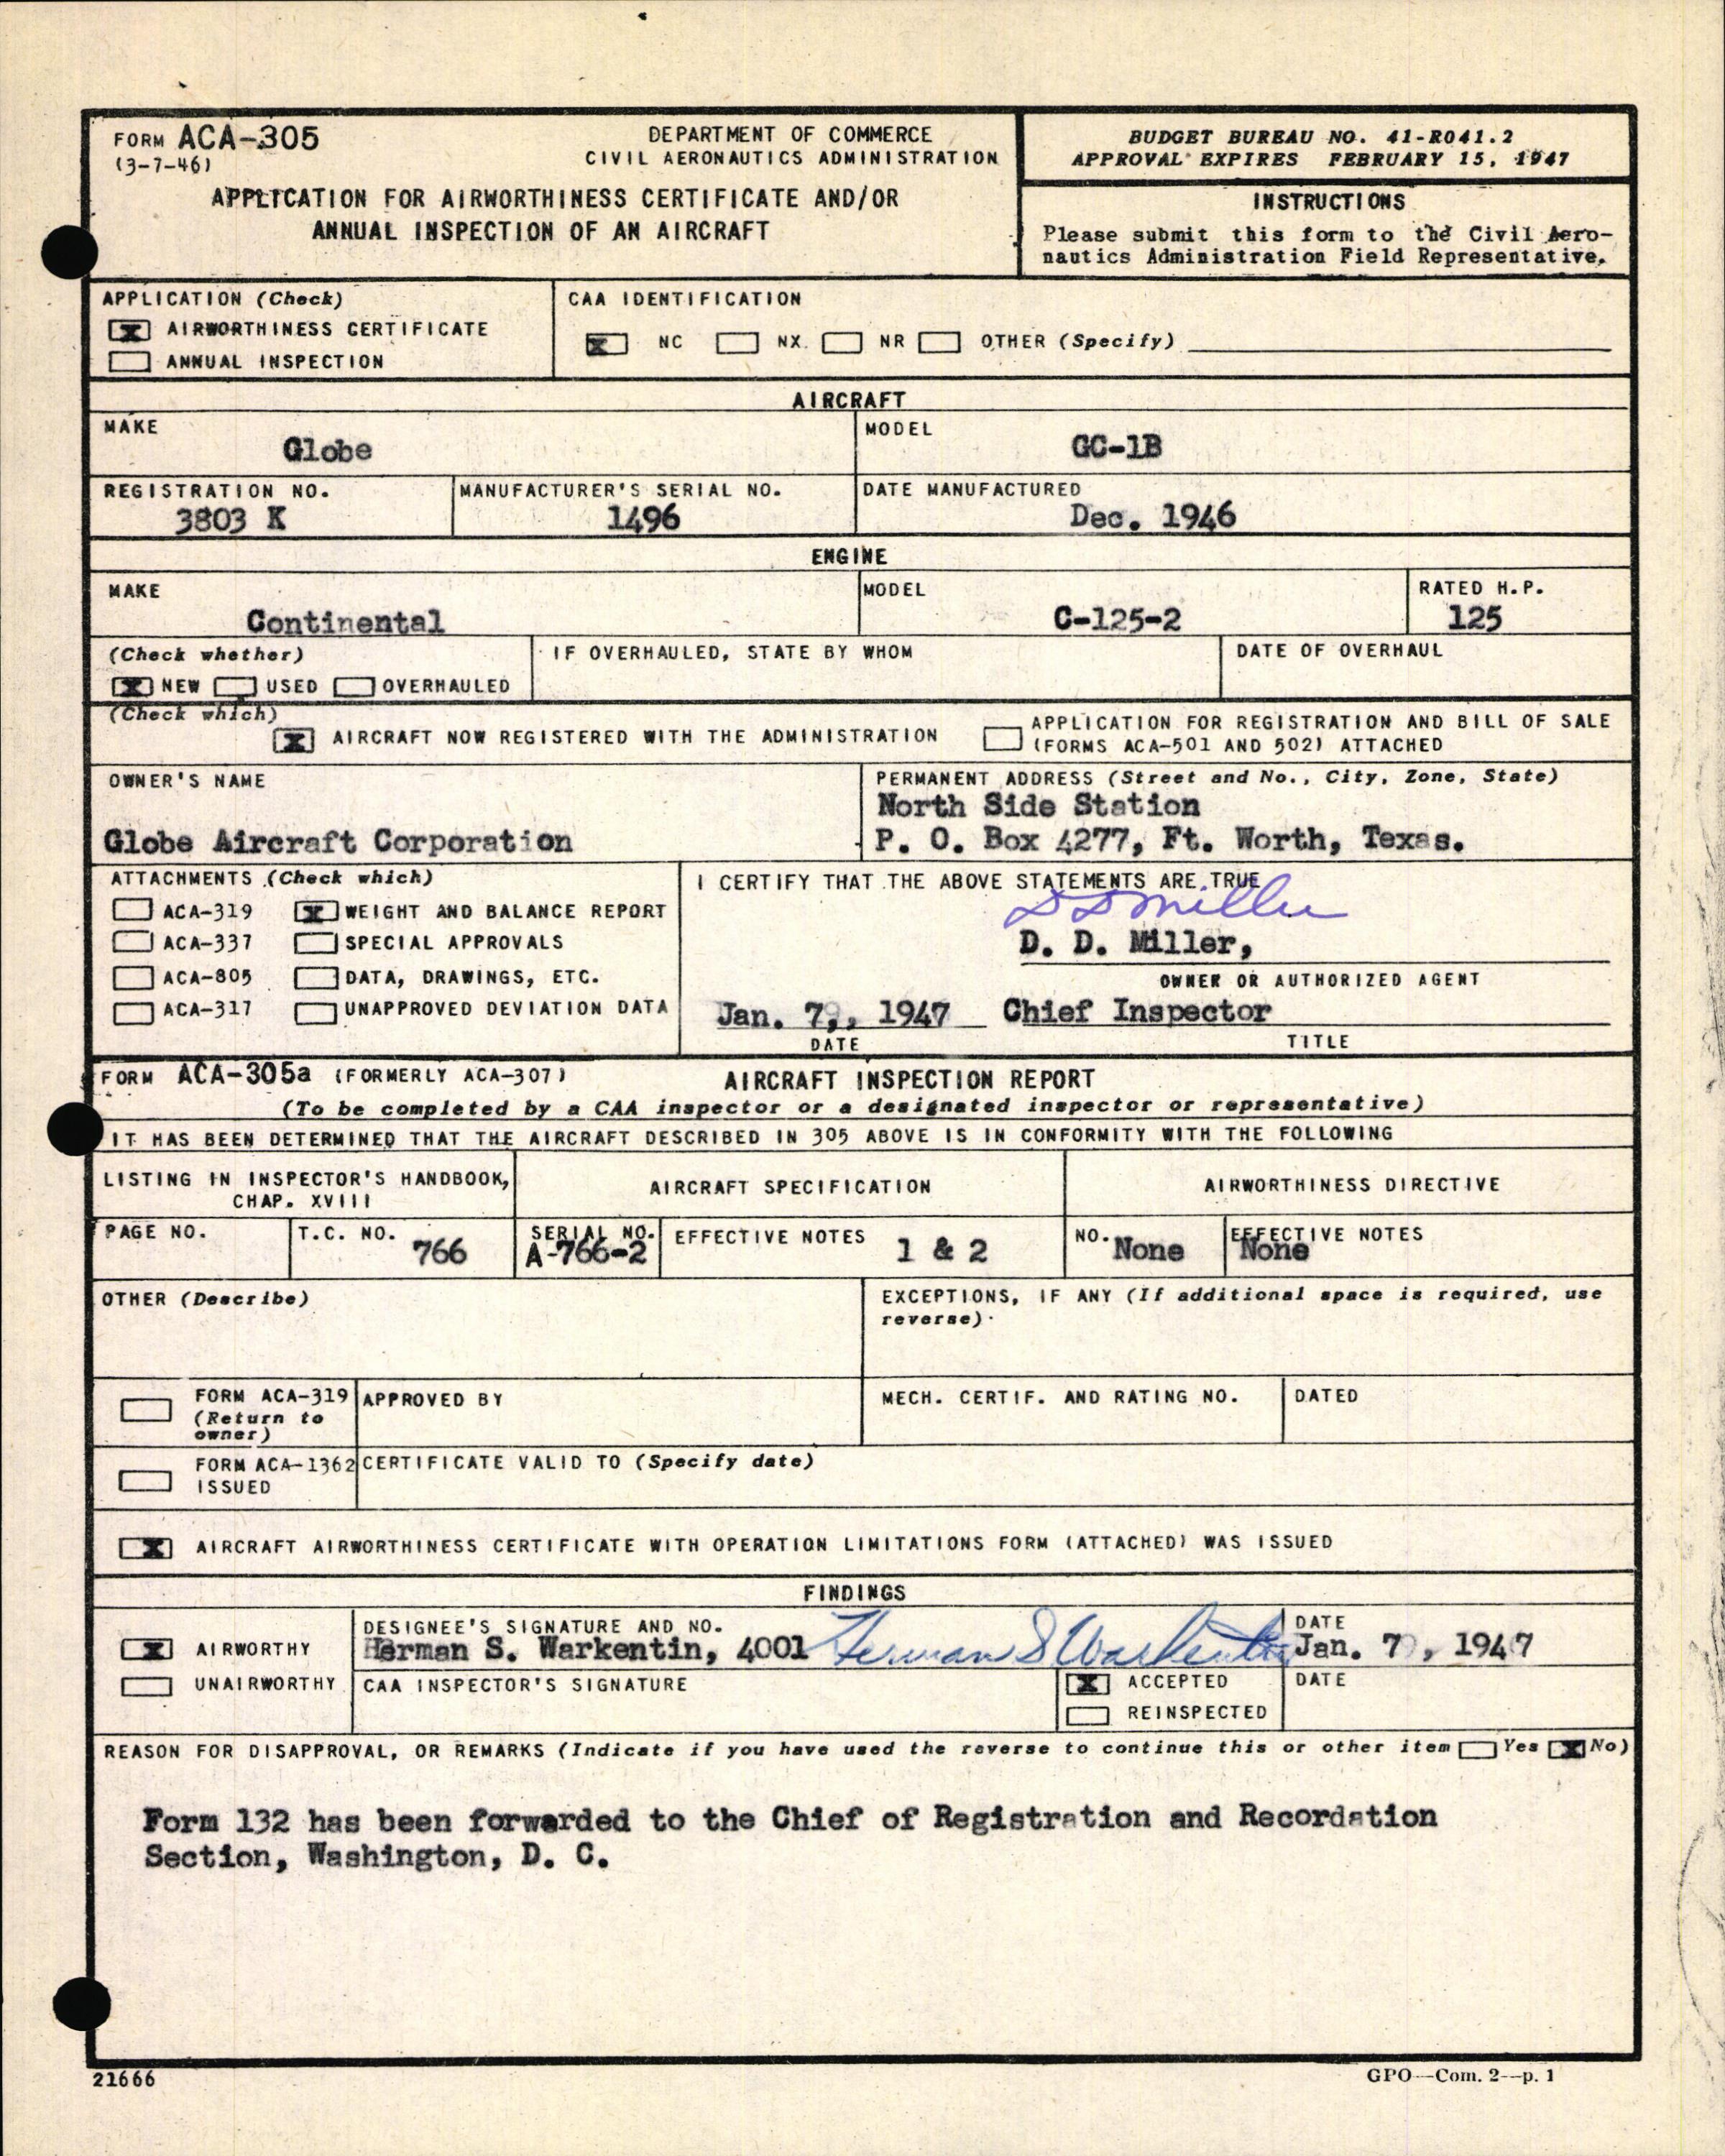 FORM ACA-305
(3-7-46)
DEPARTMENT OF COMMERCE
CIVIL AERONAUTICS ADMINISTRATION
APPLICATION FOR AIRWORTHINESS CERTIFICATE AND/OR
ANNUAL INSPECTION OF AN AIRCRAFT
BUDGET BUREAU NO. 41-R041.2
APPROVAL EXPIRES FEBRUARY 15, 1947
INSTRUCTIONS
Please submit this form to the Civil Aero-
nautics Administration Field Representative.
APPLICATION (Check)
X AIRWORTHINESS CERTIFICATE
ANNUAL INSPECTION
CAA IDENTIFICATION
X NC NX NR OTHER (Specify)
AIRCRAFT
MAKE
Globe
MODEL
GC-1B
REGISTRATION NO.
3803 K
MANUFACTURER'S SERIAL NO.
1496
DATE MANUFACTURED
Dec. 1946
ENGINE
MAKE
Continental
MODEL
C-125-2
RATED H.P.
125
(Check whether)
X NEW USED OVERHAULED
IF OVERHAULED, STATE BY WHOM
DATE OF OVERHAUL
(Check which)
X AIRCRAFT NOW REGISTERED WITH THE ADMINISTRATION
APPLICATION FOR REGISTRATION AND BILL OF SALE
(FORMS ACA-501 AND 502) ATTACHED
OWNER'S NAME
Globe Aircraft Corporation
PERMANENT ADDRESS (Street and No., City, Zone, State)
North Side Station
P. O. Box 4277, Ft. Worth, Texas.
ATTACHMENTS (Check which)
ACA-319 X WEIGHT AND BALANCE REPORT
ACA-337 SPECIAL APPROVALS
ACA-805 DATA, DRAWINGS, ETC.
ACA-317 UNAPPROVED DEVIATION DATA
I CERTIFY THAT THE ABOVE STATEMENTS ARE TRUE
D D Miller
D. D. Miller,
OWNER OR AUTHORIZED AGENT
Jan. 7, 1947 Chief Inspector
DATE TITLE
FORM ACA-305a (FORMERLY ACA-307) AIRCRAFT INSPECTION REPORT
(To be completed by a CAA inspector or a designated inspector or representative)
IT HAS BEEN DETERMINED THAT THE AIRCRAFT DESCRIBED IN 305 ABOVE IS IN CONFORMITY WITH THE FOLLOWING
LISTING IN INSPECTOR'S HANDBOOK,
CHAP. XVIII
AIRCRAFT SPECIFICATION
AIRWORTHINESS DIRECTIVE
PAGE NO.
T.C. NO.
766
SERIAL NO.
A-766-2
EFFECTIVE NOTES 1 & 2
NO. None
EFFECTIVE NOTES
None
OTHER (Describe)
EXCEPTIONS, IF ANY (If additional space is required, use
reverse)
FORM ACA-319
(Return to
owner)
APPROVED BY
MECH. CERTIF. AND RATING NO.
DATED
FORM ACA-1362
ISSUED
CERTIFICATE VALID TO (Specify date)
X AIRCRAFT AIRWORTHINESS CERTIFICATE WITH OPERATION LIMITATIONS FORM (ATTACHED) WAS ISSUED
FINDINGS
X AIRWORTHY
UNAIRWORTHY
DESIGNEE'S SIGNATURE AND NO.
Herman S. Warkentin, 4001 Herman S Warkentin
DATE
Jan. 7, 1947
CAA INSPECTOR'S SIGNATURE
X ACCEPTED
REINSPECTED
DATE
REASON FOR DISAPPROVAL, OR REMARKS (Indicate if you have used the reverse to continue this or other item Yes X No)
Form 132 has been forwarded to the Chief of Registration and Recordation
Section, Washington, D. C.
21666
GPO—Com. 2—p. 1